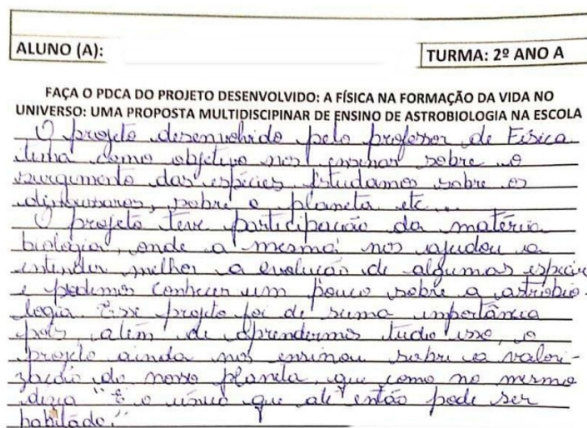 ALUNO (A):
TURMA: 2º ANO A
FAÇA O PDCA DO PROJETO DESENVOLVIDO: A FÍSICA NA FORMAÇÃO DA VIDA NO
UNIVERSO: UMA PROPOSTA MULTIDISCIPINAR DE ENSINO DE ASTROBIOLOGIA NA ESCOLA
O projeto desenvolvido pelo professor de Física
tinha como objetivo nos ensinar sobre o
surgimento das espécies. Estudamos sobre os
dinossauros, sobre o planeta etc...
O projeto teve participação da matéria
biologia, onde a mesma nos ajudou a
entender melhor a evolução de algumas espécies
e podemos conhecer um pouco sobre a astrobio-
logia. Esse projeto foi de suma importância
pois, além de aprendermos tudo isso, o
projeto ainda nos ensinou sobre a valori-
zação do nosso planeta, que como no mesmo
dizia "É o único que até então pode ser
habitado."